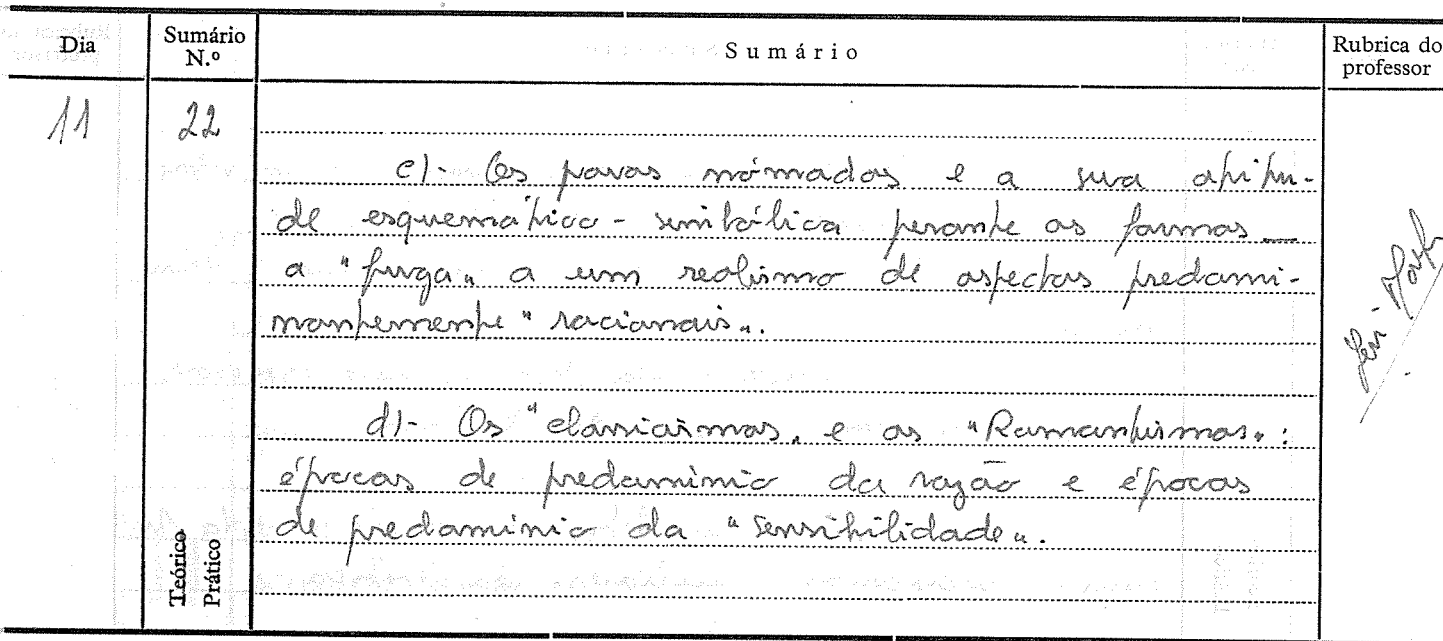 Dia Sumário N.º Sumário Rubrica do professor
11 22
c)- Os povos nómadas e a sua aptitu-
de esquemático-simbólica perante as formas —
a "fuga" a um realismo de aspectos predomi-
nantemente "racionais".
d)- Os "classicismos" e os "Romantismos":
épocas de predomínio da razão e épocas
de predomínio da "sensibilidade".
Teórico
Prático